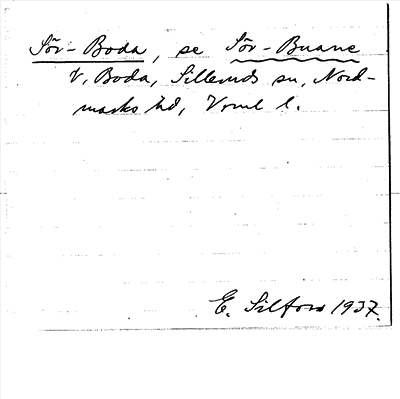 Sör-Boda, se Sör-Buane
V. Boda, Silleruds sn, Nord-
marks hd, Vrml l.
E. Silfors 1937.